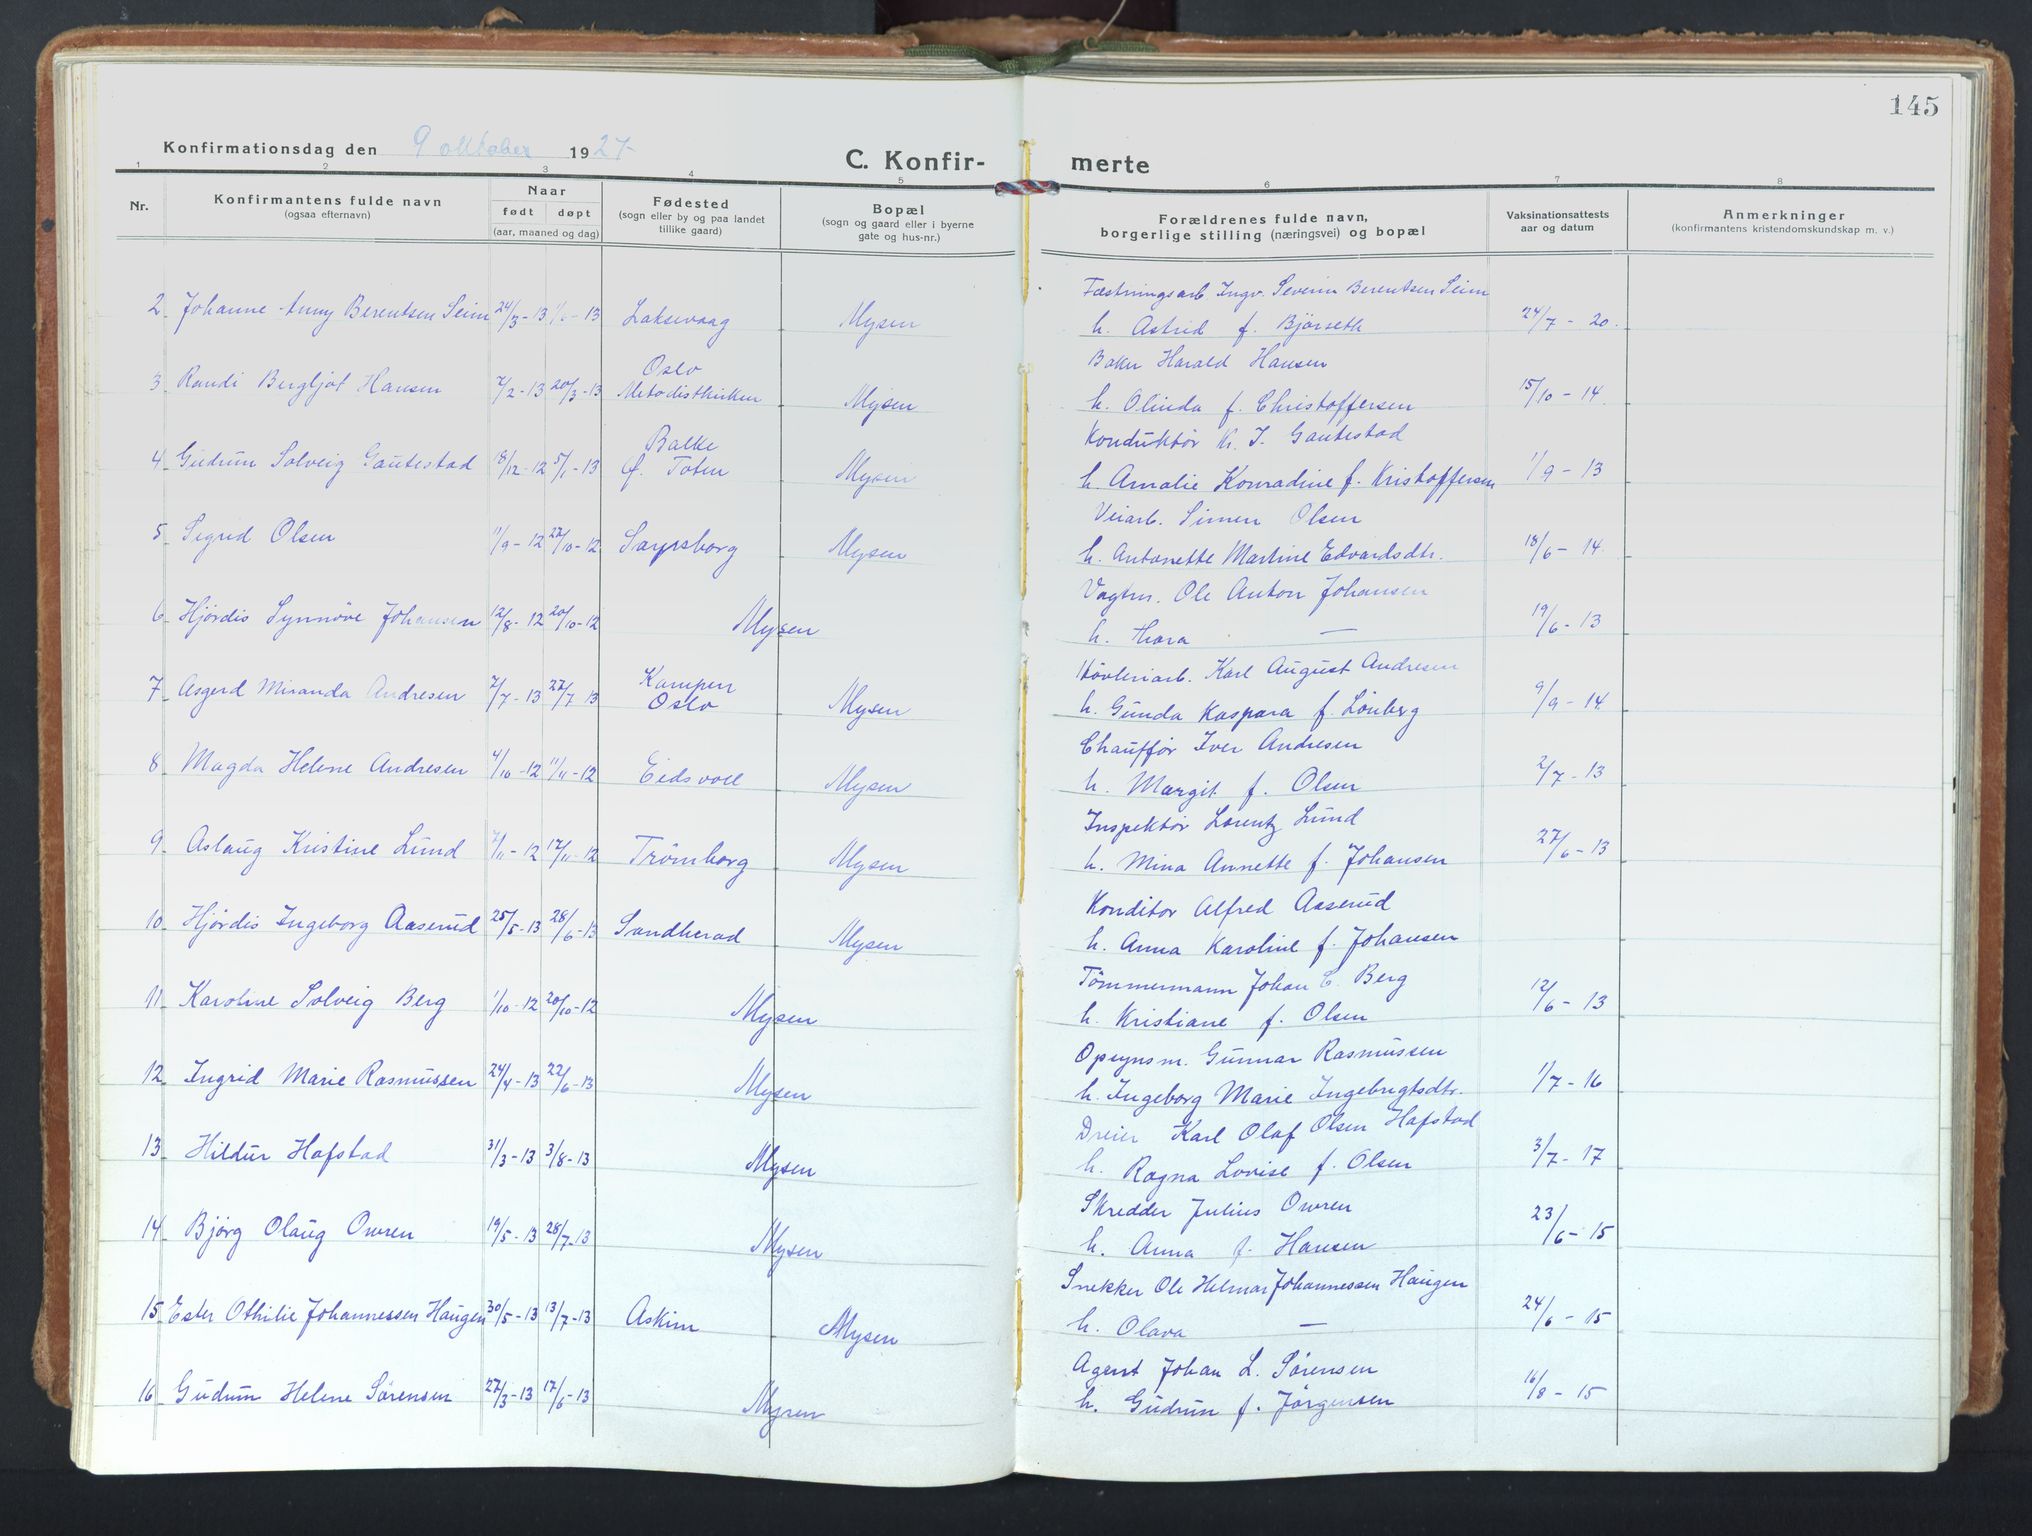 145
Konfirmationsdag den 9 oktober 1927
C. Konfir- merte
1 2 3 4 5 6 7 8
Nr.
Konfirmantens fulde navn
(ogsaa efternavn)
Naar
født døpt
(aar, maaned og dag)
Fødested
(sogn eller by og paa landet
tillike gaard)
Bopæl
(sogn og gaard eller i byerne
gate og hus-nr.)
Forældrenes fulde navn,
borgerlige stilling (næringsvei) og bopæl
Vaksinationsattests
aar og datum
Anmerkninger
(konfirmantens kristendomskundskap m. v.)
Fæstningsarb. Ingv. Severin Berentsen Seim
2 Johanne Anny Berentsen Seim 24/3-13 1/6-13 Laksevaag Mysen h. Astrid f. Bjørseth 24/7-20.
Oslo Baker Harald Hansen
3 Randi Bergljot Hansen 7/2-13 20/3-13 Metodistkirken Mysen h. Olinda f. Christoffersen 15/10-14.
Balke Konduktør Kr. J. Gautestad
4 Gudrun Solveig Gautestad 18/12-12 5/1-13 Ø. Toten Mysen h. Amalie Konradine f. Kristoffersen 1/9-13
Veiarb. Simen Olsen
5 Sigrid Olsen 11/9-12 27/10-12 Sarpsborg Mysen h. Antonette Martine Edvardsdtr. 18/6-14.
Vagtm. Ole Anton Johansen
6 Hjørdis Synnöve Johansen 12/8-12 20/10-12 Mysen h. Thora — 19/6-13
Kampen Høvleriarb. Karl August Andresen
7 Asgerd Miranda Andresen 7/7-13 27/7-13 Oslo Mysen h. Gunda Kaspara f. Lönberg 9/9-14.
Chauffør Iver Andresen
8 Magda Helene Andresen 4/10-12 11/11-12 Eidsvoll Mysen h. Margit f. Olsen 2/7-13
Inspektör Lorentz Lund
9 Aslaug Kristine Lund 7/11-12 17/11-12 Trömborg Mysen h. Mina Annette f. Johansen 27/6-13
Konditor Alfred Aaserud
10 Hjørdis Ingeborg Aaserud 25/5-13 28/6-13 Sandherad Mysen h. Anna Karoline f. Johansen
Tömmermann Johan C. Berg
11 Karoline Solveig Berg 1/10-12 20/10-12 Mysen h. Kristiane f. Olsen 12/6-13
Opsynsm. Gunnar Rasmussen
12 Ingrid Marie Rasmussen 24/4-13 22/6-13 Mysen h. Ingeborg Marie Ingebrigtsdtr. 1/7-16
Dreier Karl Olaf Olsen Hafstad
13 Hildur Hafstad 31/3-13 3/8-13 Mysen h. Ragna Lovise f. Olsen 3/7-17
Skredder Julius Owren
14 Bjørg Olaug Owren 19/5-13 28/7-13 Mysen h. Anna f. Hansen 23/6-15
Snekker Ole Helmar Johannessen Haugen
15 Ester Othilie Johannessen Haugen 30/5-13 13/7-13 Askim Mysen h. Olava — 24/6-15
Agent Johan L. Sörensen
16 Gudrun Helene Sörensen 27/3-13 17/6-13 Mysen h. Gudrun f. Jörgensen 16/8-15